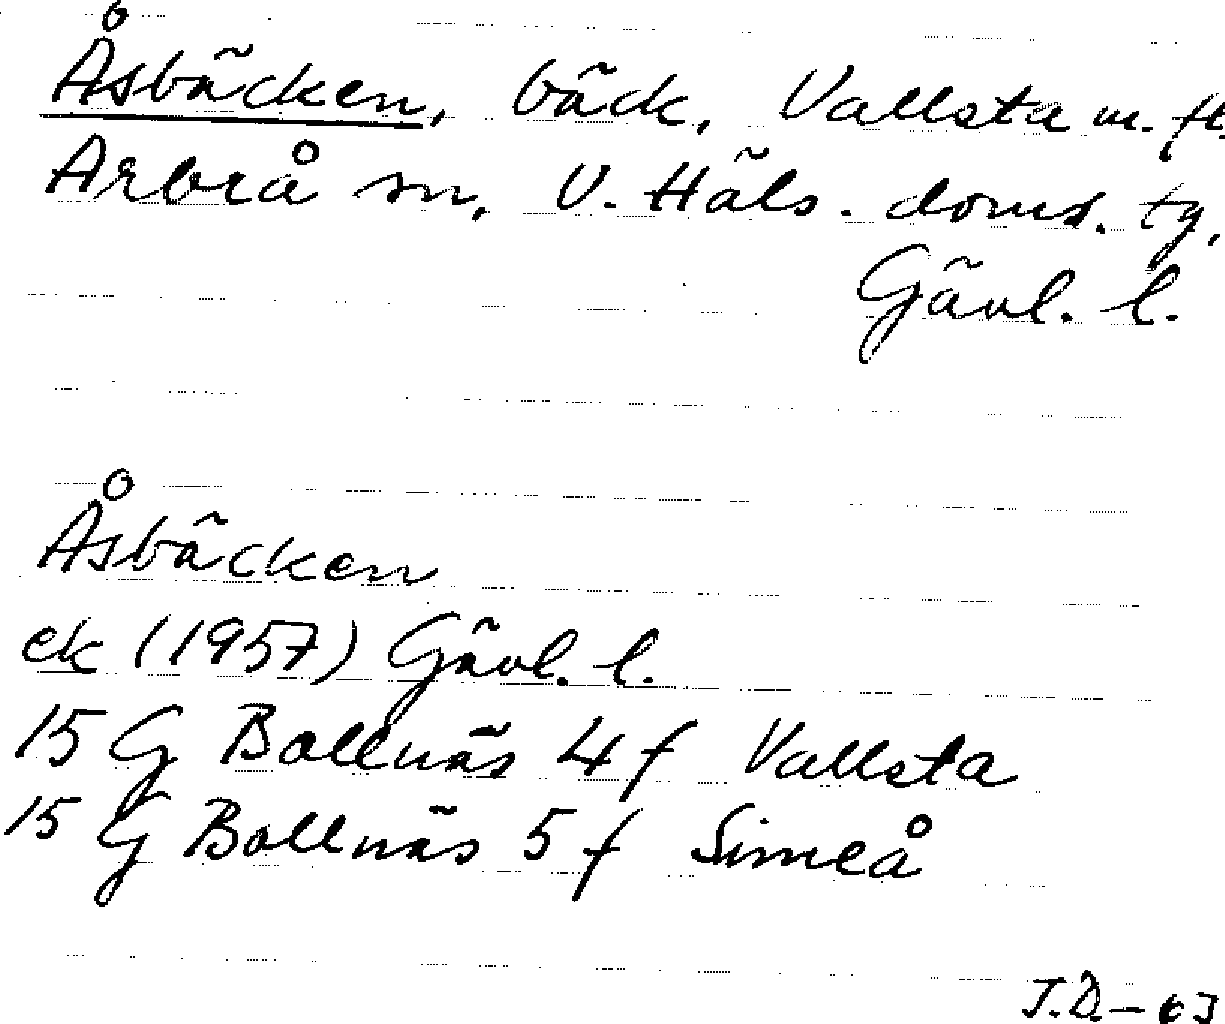 Åsbäcken, bäck, Vallsta m. fl.
Arbrå sn, V. Häls. doms. tg,
Gävl. l.
Åsbäcken
ek (1957) Gävl. l.
15 G Bollnäs 4 f Vallsta
15 G Bollnäs 5 f Simeå
J.D.-63